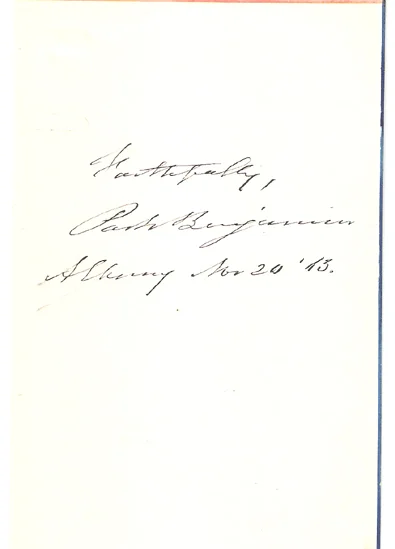 Faithfully,
Park Benjamin
Albany Nov 20 '53.